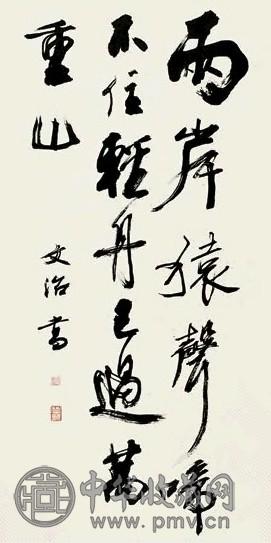 兩岸猿聲啼
不住輕舟已過萬
重山
文治書
中华收藏网
www.pmv.cn